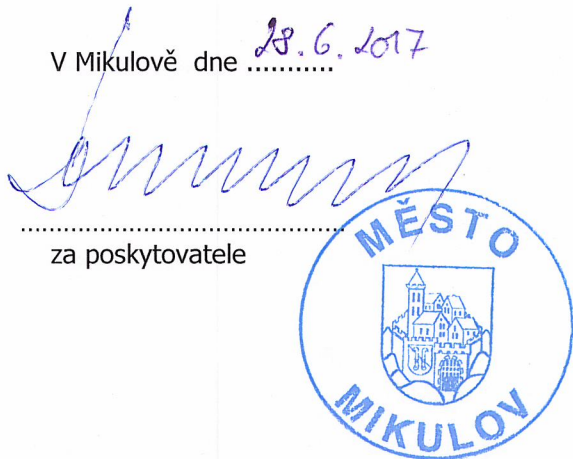 V Mikulově dne 28.6.2017
za poskytovatele
MĚSTO
MIKULOV